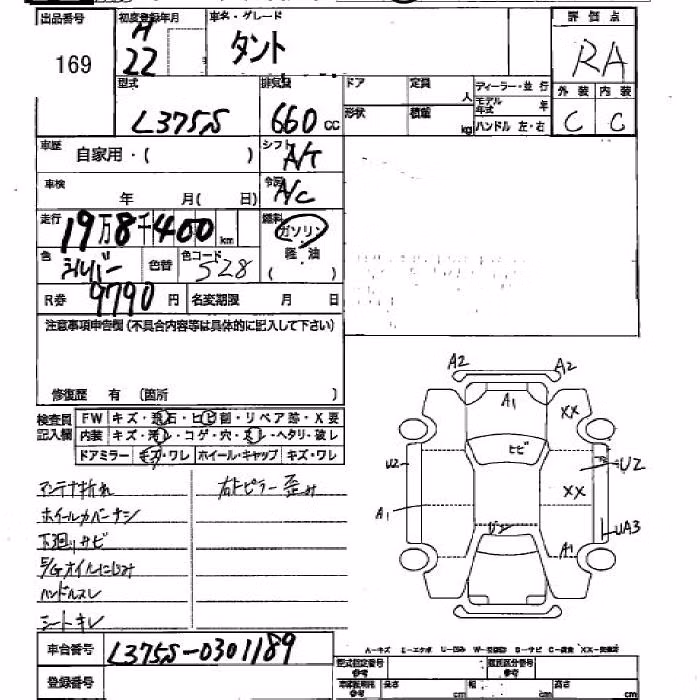 出品番号 初度登録年月 車名・グレード 評価点
169 H 22 タント RA
型式 排気量 ドア 定員 人 ディーラー・並行 外装 内装
L375S 660 cc 形状 積載 kg モデル年式 年 C C
ハンドル 左・右
車歴 自家用・( ) シフト A/T
車検 年 月( 日) 冷房 A/C
走行 19万8千400km 燃料 ガソリン
色 シルバー 色替 色コード S28 軽油
( )
R券 9790円 名変期限 月 日
注意事項申告欄(不具合内容等は具体的に記入して下さい)
修復歴 有 (箇所 )
検査員 FW キズ・飛石・ヒビ割・リペア跡・X要
記入欄 内装 キズ・汚レ・コゲ・穴・スレ・ヘタリ・破レ
ドアミラー キズ・ワレ ホイール・キャップ キズ・ワレ
アンテナ折れ 右Bピラー歪み
ホイールカバーナシ
下廻りサビ
E/Gオイルにじみ
ハンドルスレ
シートキレ
A2 A2
A1 XX
ヒビ
U2 U2
XX
A1 UA3
A1
車台番号 L375S-0301189
A-キズ E-エクボ
登録番号 型式指定番号 類別区分番号
参考 長さ cm 幅 cm 高さ cm